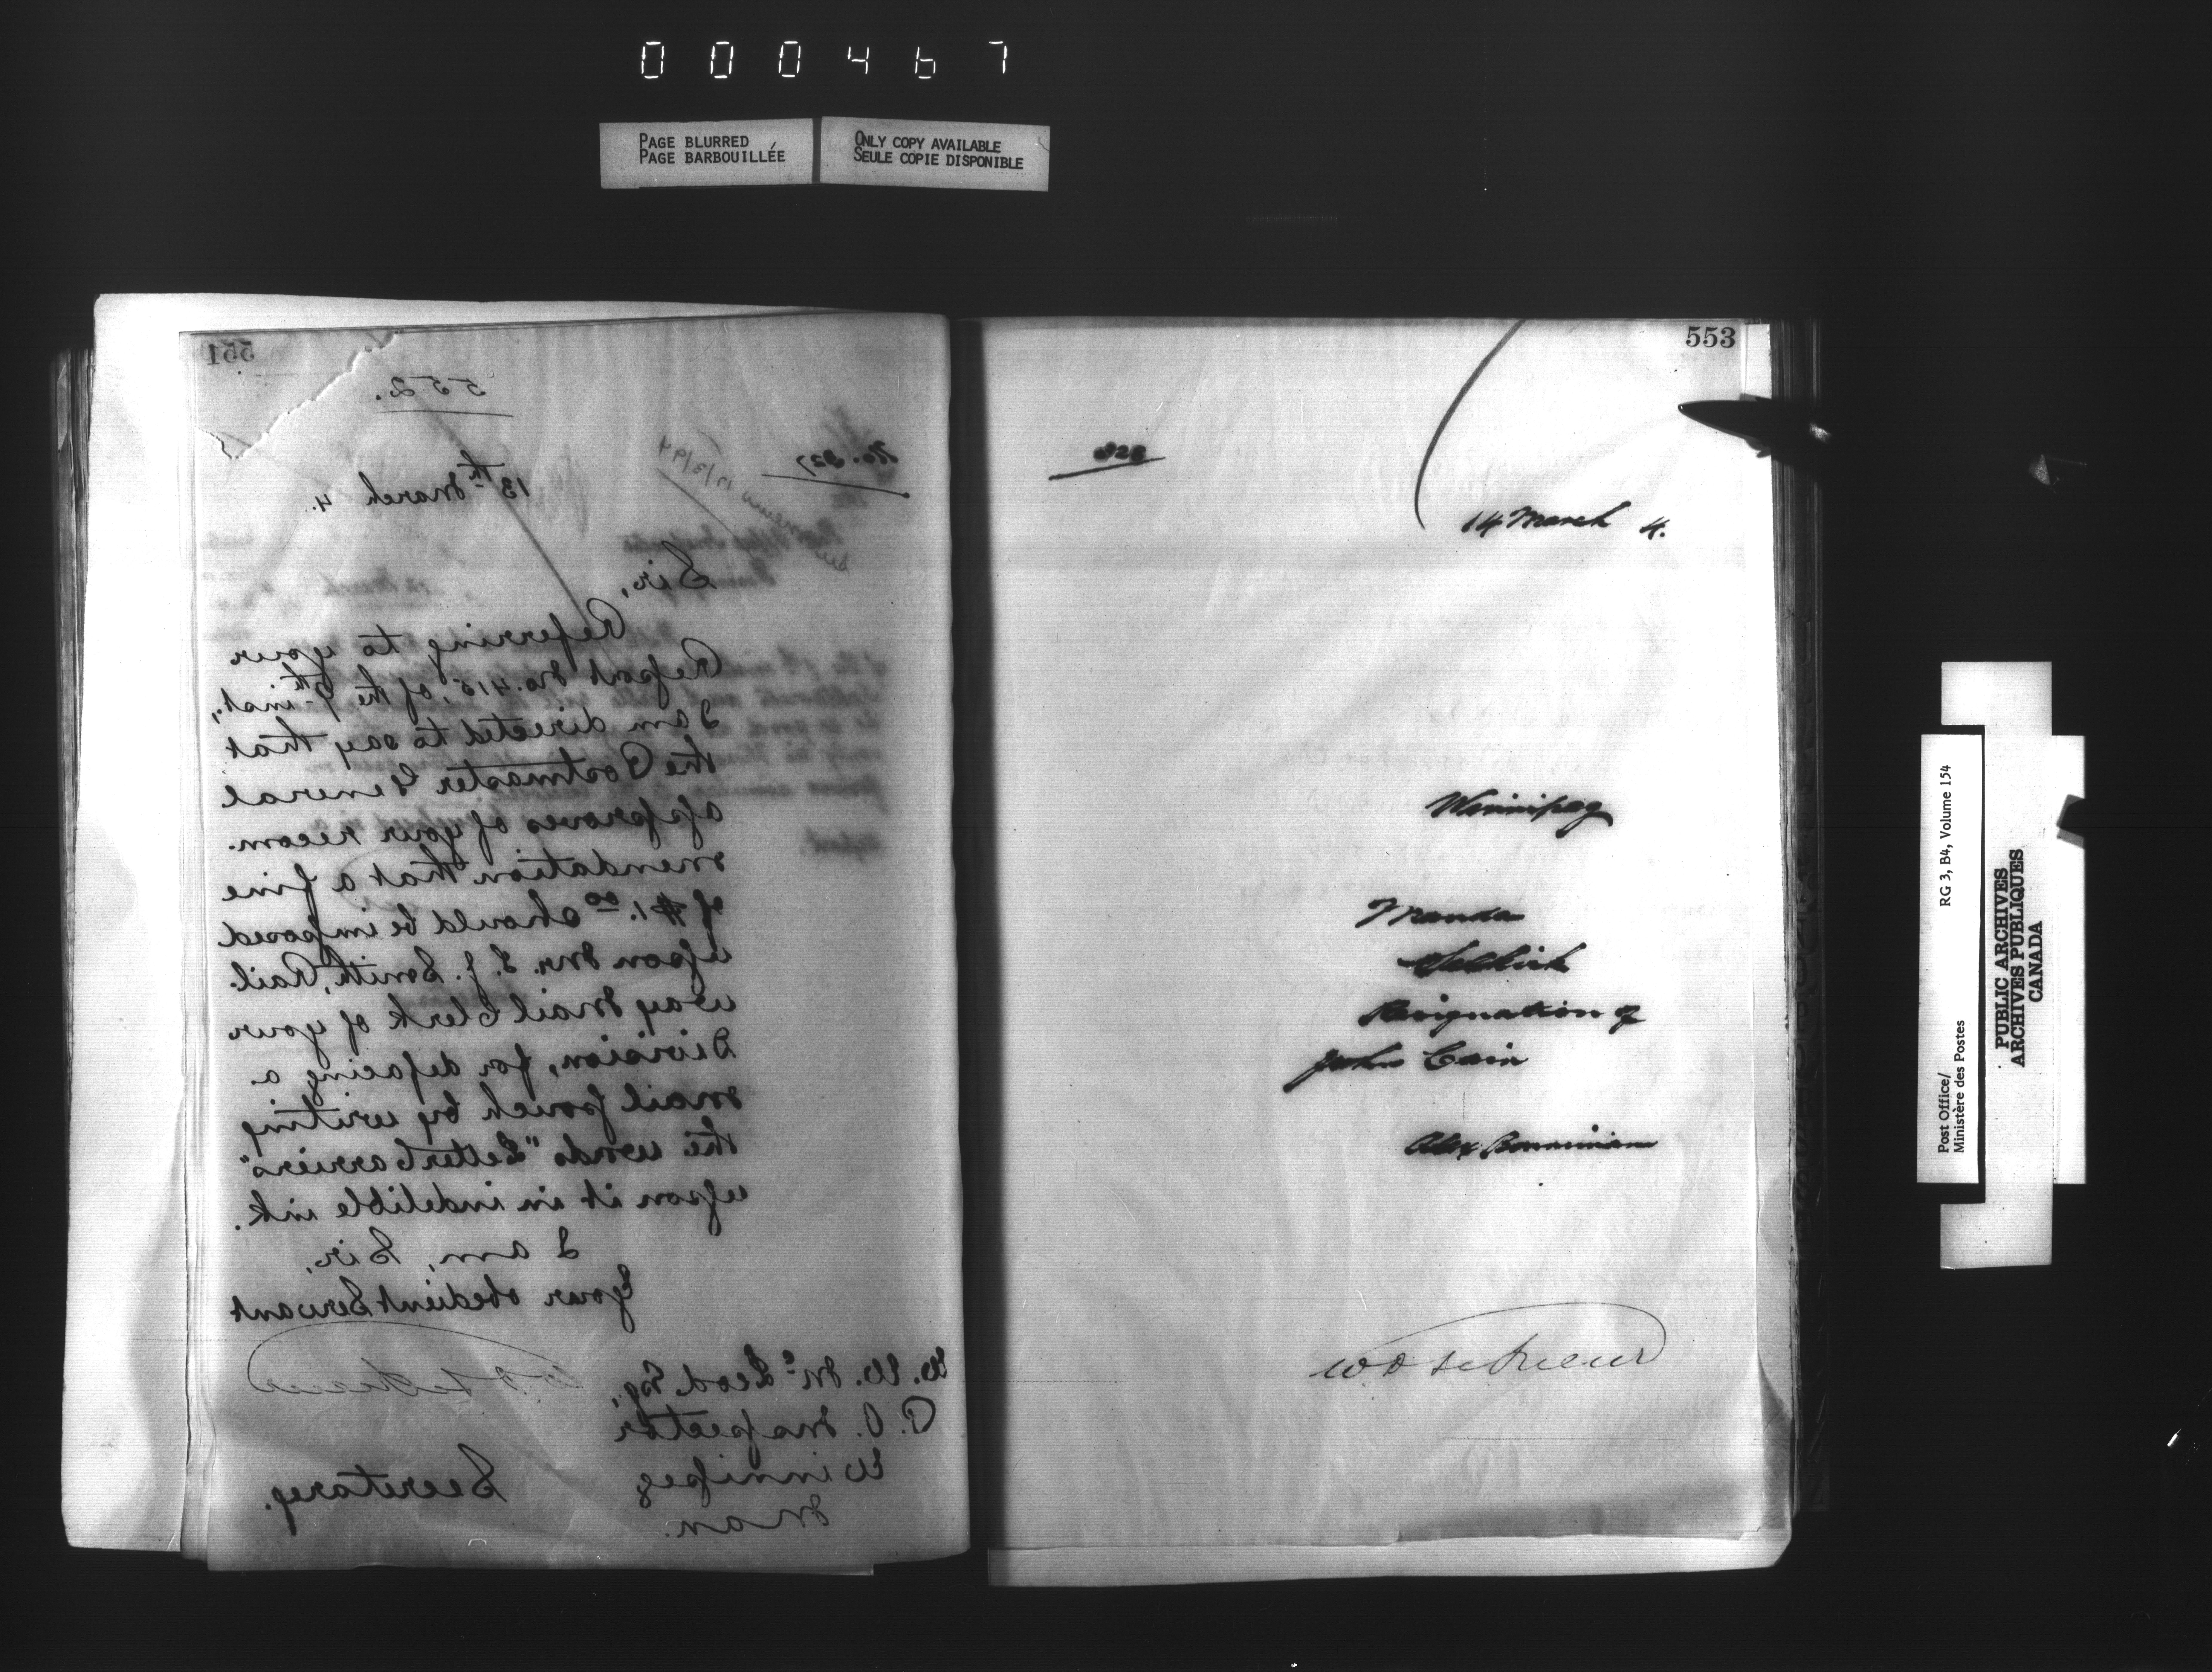 000467
PAGE BLURRED
PAGE BARBOUILLÉE
ONLY COPY AVAILABLE
SEULE COPIE DISPONIBLE
551
552.
No. 327
13th March 4.
Sir,
Referring to your
Report No. 415, of the 9th inst.,
I am directed to say that
the Postmaster General
approves of your recom-
mendation that a fine
of $1.00 should be imposed
upon Mr. S. J. Smith, Rail-
way Mail Clerk of your
Division, for defacing a
mail pouch by writing
the words "Letter Carriers"
upon it in indelible ink.
I am, Sir,
Your obedient Servant
W. W. McLeod Esq.,
P. O. Inspector
Winnipeg
Man.
Secretary.
553
328
14 March 4.
Winnipeg
Manda
Selkirk
Resignation of
John Cain
Alex
Post Office/
Ministère des Postes
RG 3, B4, Volume 154
PUBLIC ARCHIVES
ARCHIVES PUBLIQUES
CANADA